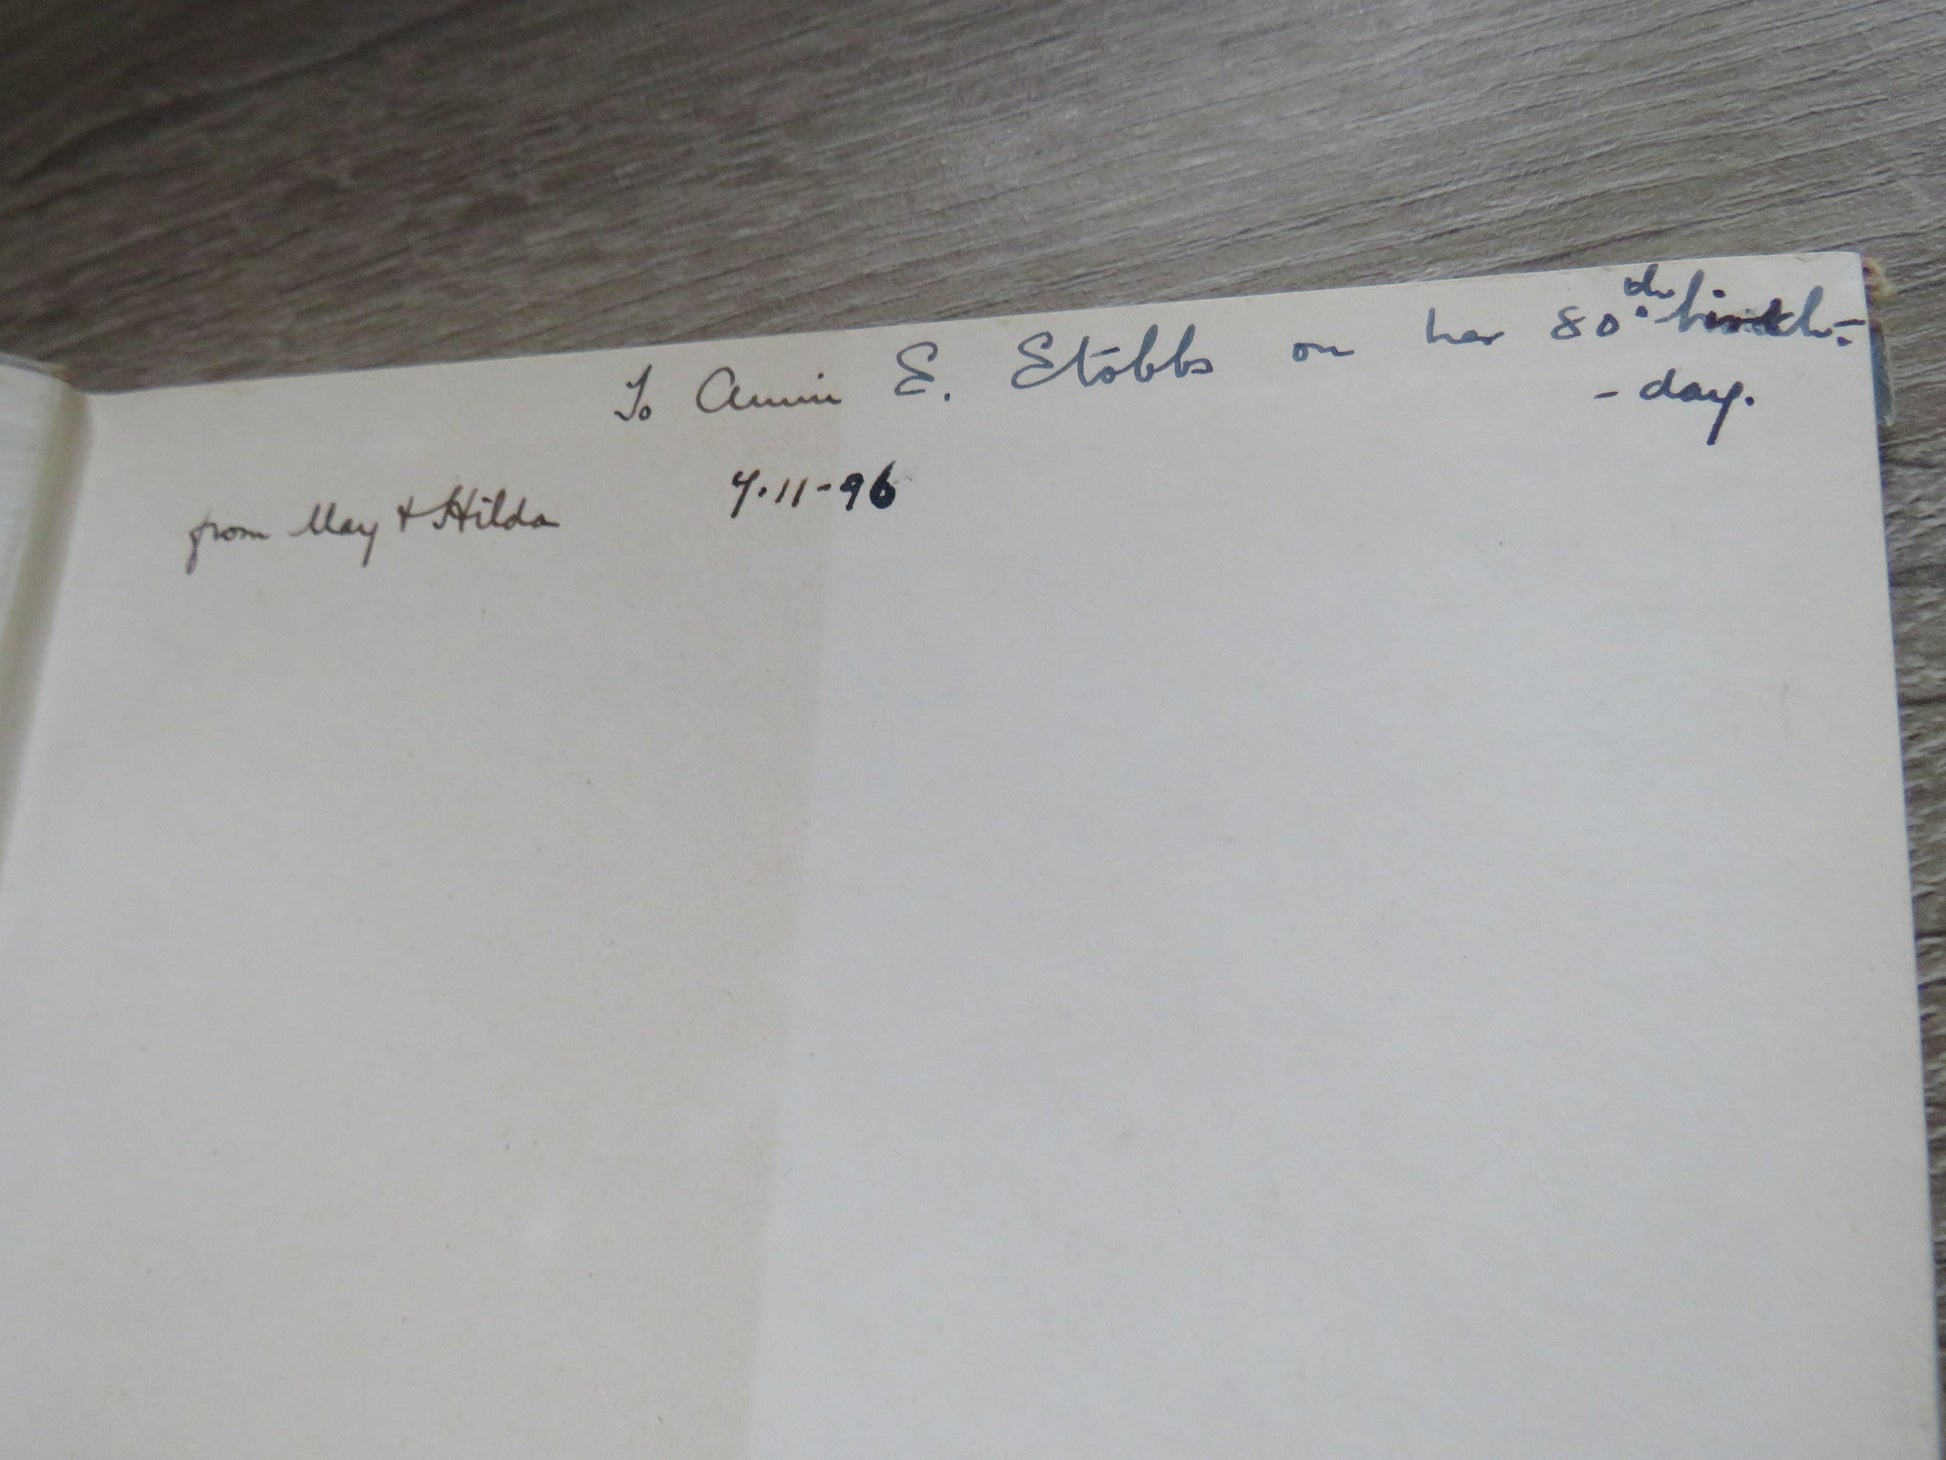 To Annie E. Stobbs on her 80th birth-
- day.
from May + Hilda 7.11-96